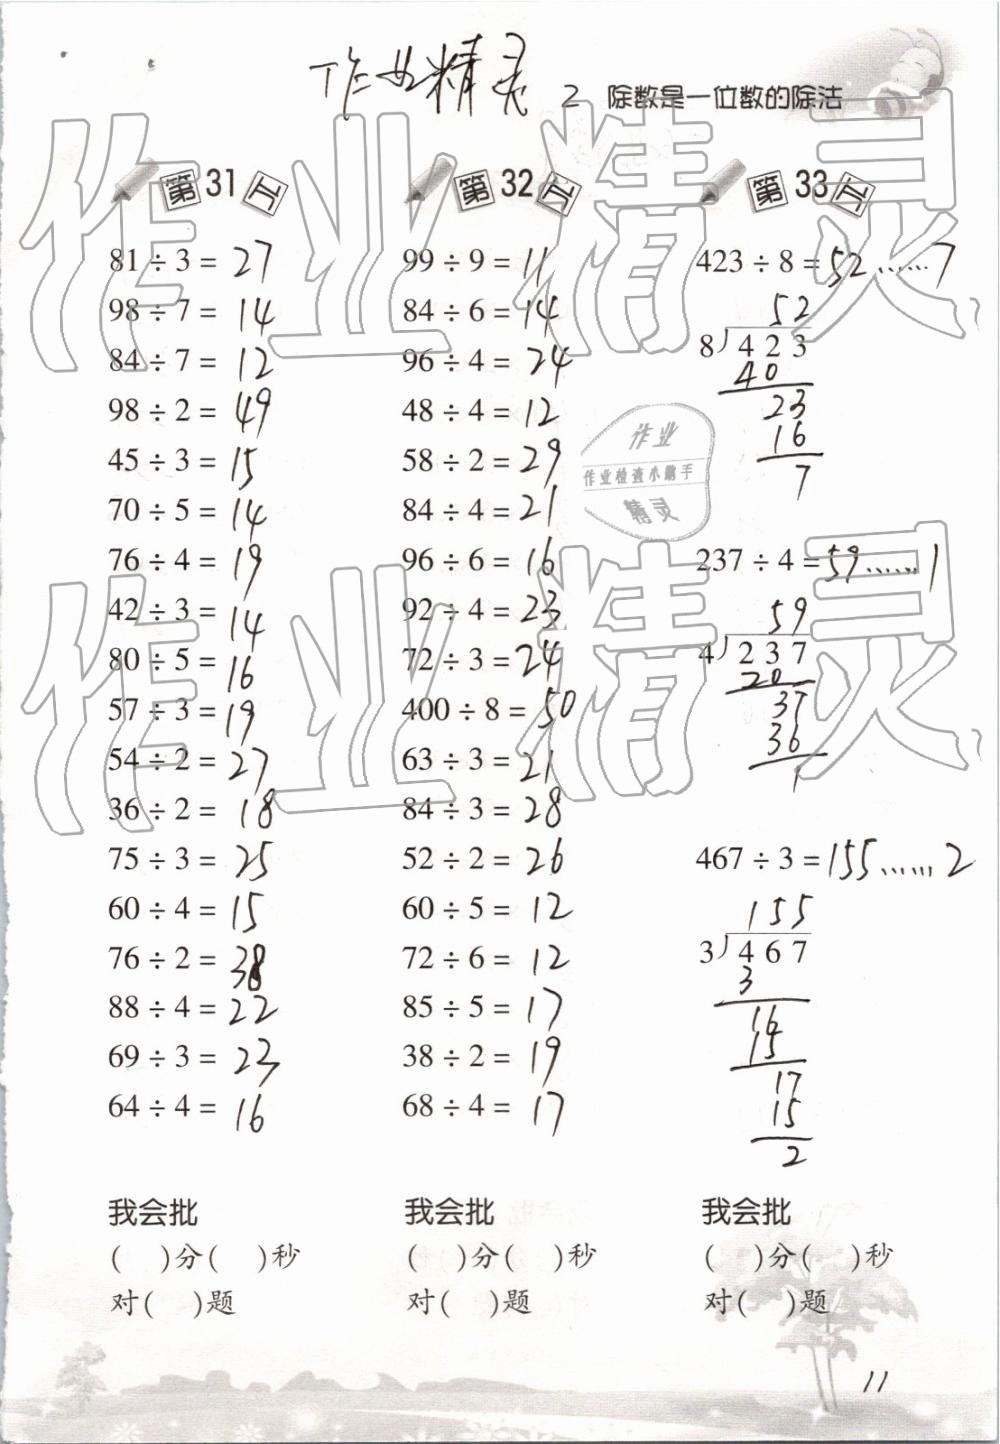 作业精灵
2 除数是一位数的除法
第31天
81÷3=27
98÷7=14
84÷7=12
98÷2=49
45÷3=15
70÷5=14
76÷4=19
42÷3=14
80÷5=16
57÷3=19
54÷2=27
36÷2=18
75÷3=25
60÷4=15
76÷2=38
88÷4=22
69÷3=23
64÷4=16
我会批
( )分( )秒
对( )题
第32天
99÷9=11
84÷6=14
96÷4=24
48÷4=12
58÷2=29
84÷4=21
96÷6=16
92÷4=23
72÷3=24
400÷8=50
63÷3=21
84÷3=28
52÷2=26
60÷5=12
72÷6=12
85÷5=17
38÷2=19
68÷4=17
我会批
( )分( )秒
对( )题
第33天
423÷8=52……7
52
8)423
40
23
16
7
237÷4=59……1
59
4)237
20
37
36
1
467÷3=155……2
155
3)467
3
16
15
17
15
2
我会批
( )分( )秒
对( )题
11
作业精灵
作业精灵
作业
作业检查小助手
精灵